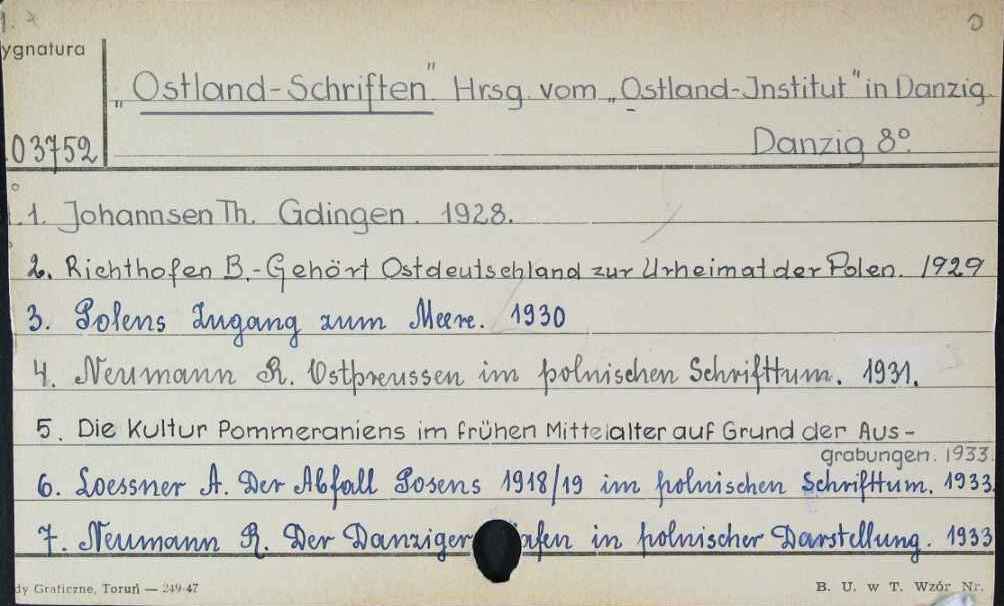 ygnatura
„Ostland-Schriften" Hrsg. vom „Ostland-Institut" in Danzig
03752
Danzig 8º.
1. Johannsen Th. Gdingen. 1928.
2. Richthofen B.-Gehört Ostdeutschland zur Urheimat der Polen. 1929
3. Polens Zugang zum Meere. 1930
4. Neumann R. Ostpreussen im polnischen Schrifttum. 1931.
5. Die Kultur Pommeraniens im frühen Mittelalter auf Grund der Aus-
grabungen. 1933.
6. Loessner A. Der Abfall Posens 1918/19 im polnischen Schrifttum. 1933.
7. Neumann R. Der Danziger äfen in polnischer Darstellung. 1933
dy Graficzne, Toruń — 249-47
B. U. w T. Wzór Nr.